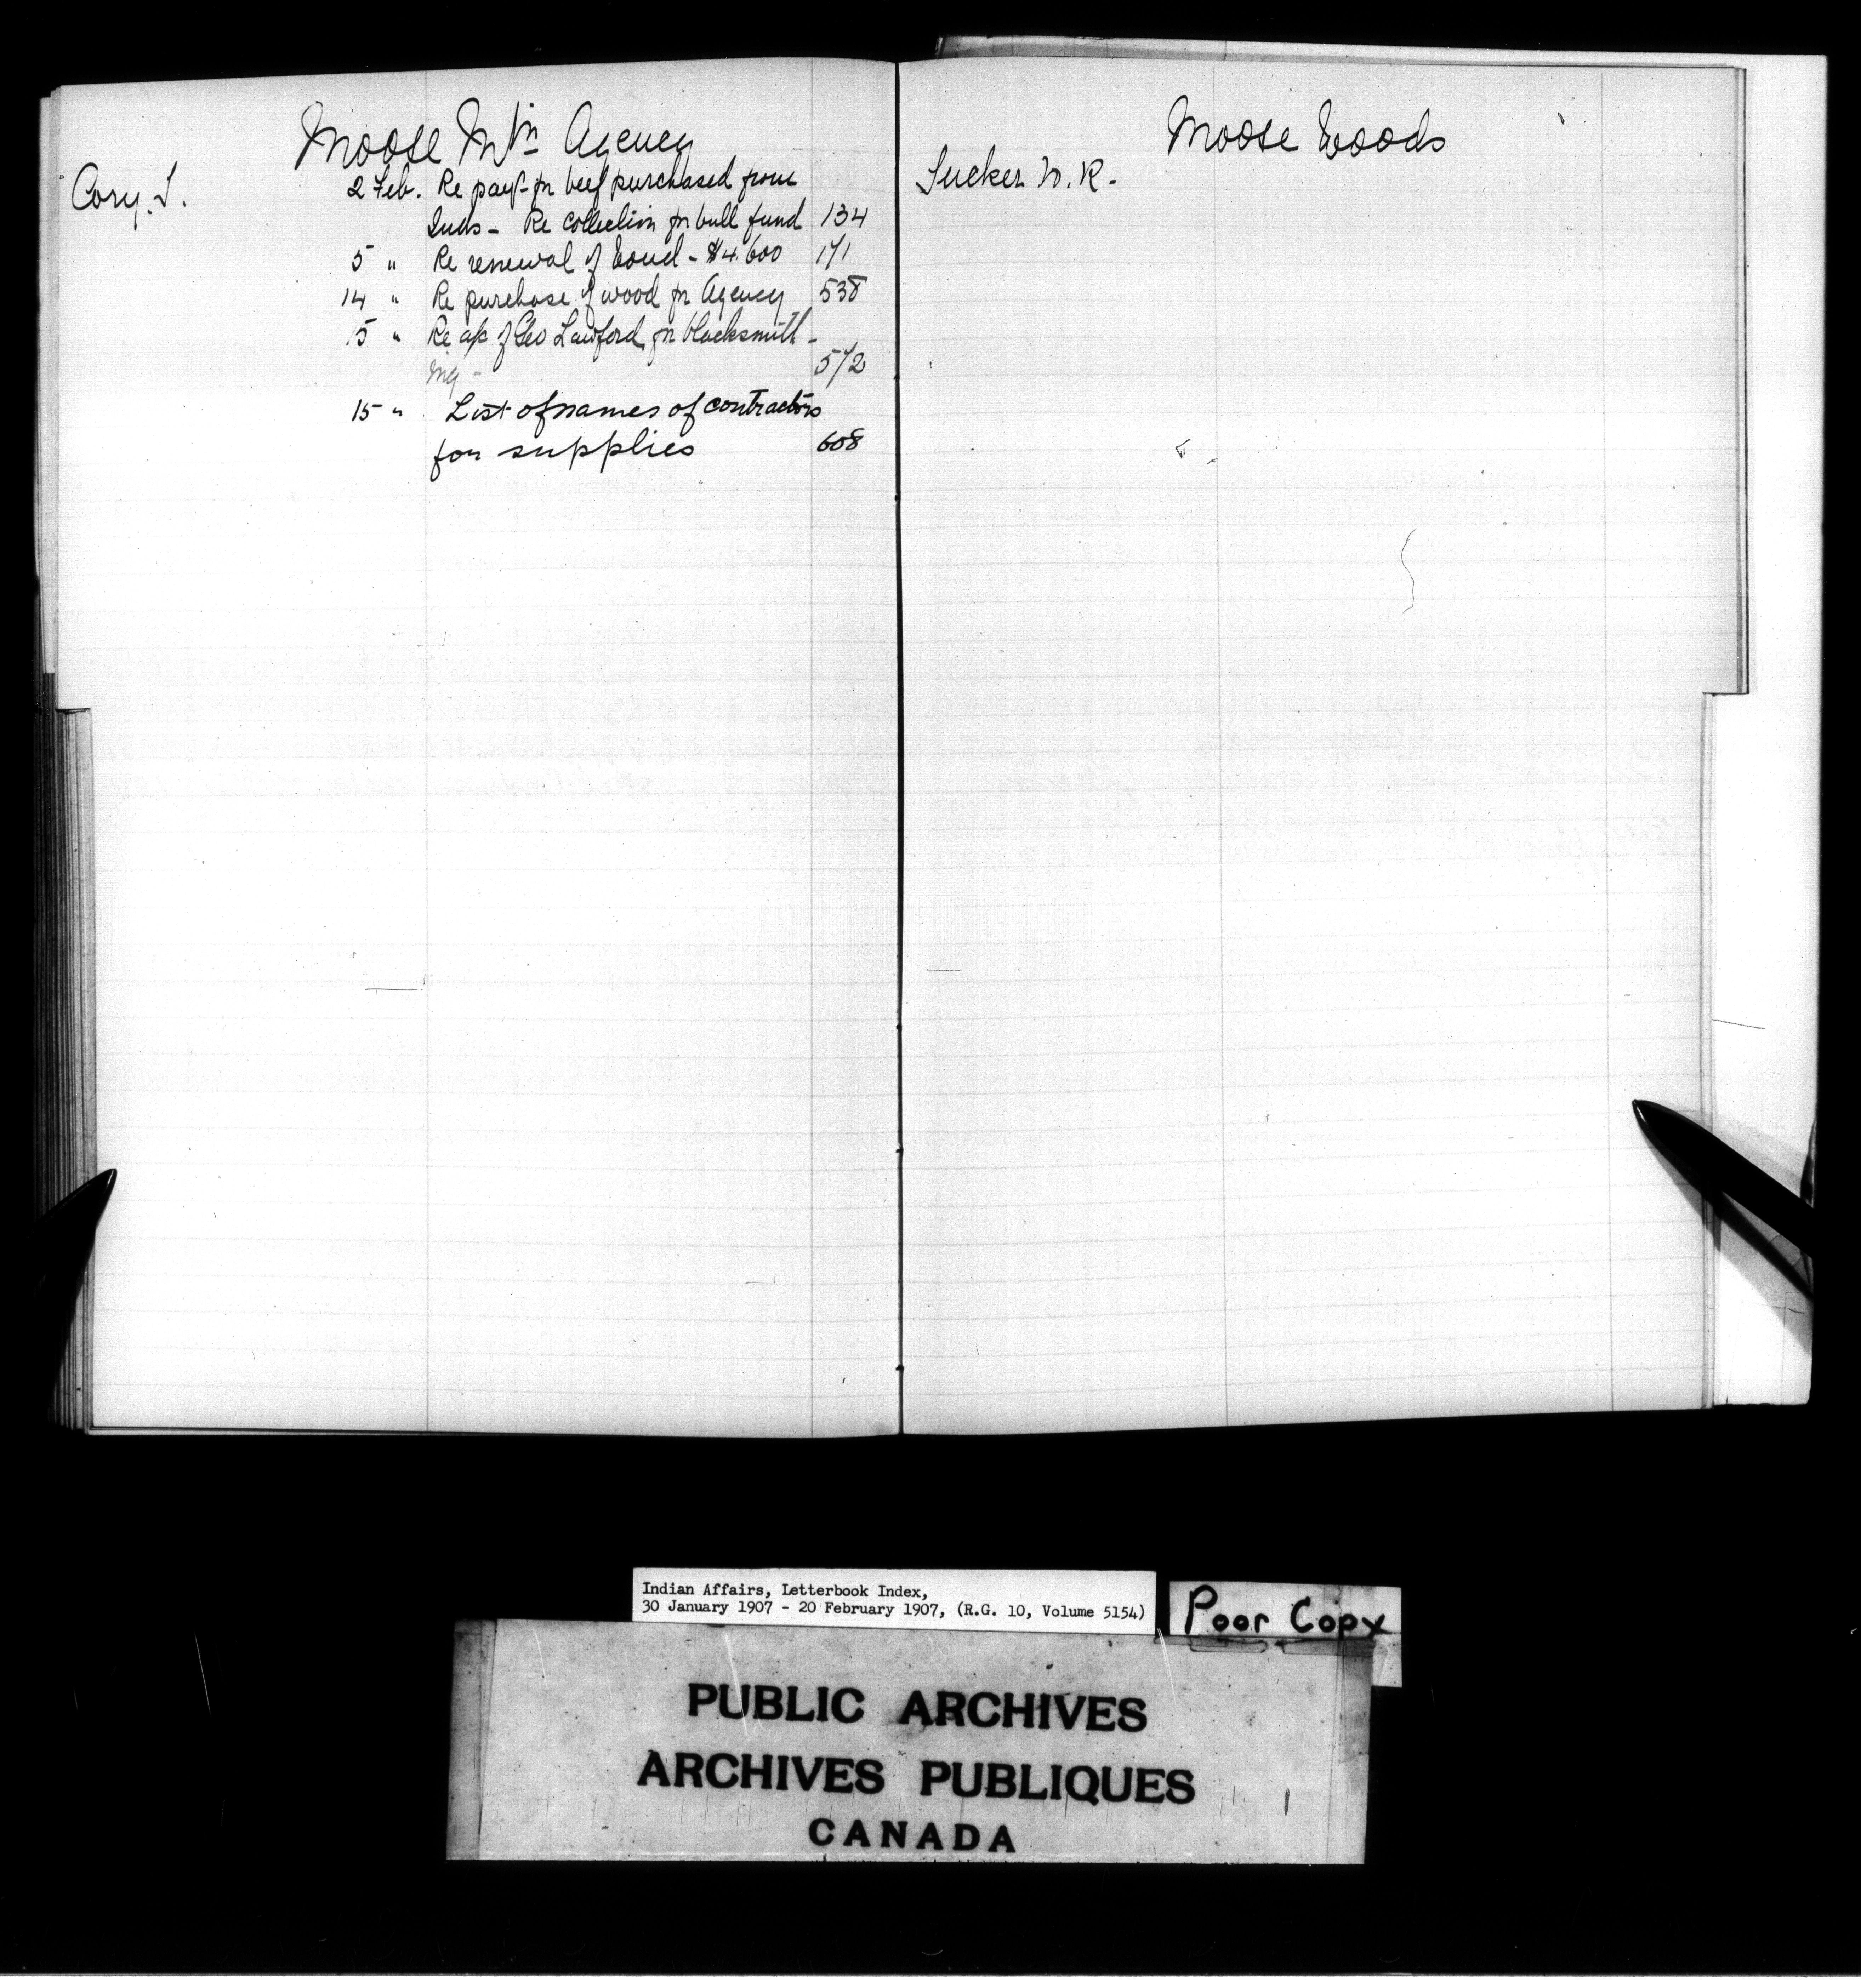 Moose Mtn Agency
Cory. T.
2 Feb. Re payt for beef purchased from
Inds - Re collection for bull fund 134
5 " Re renewal of bond - $4.600 171
14 " Re purchase of wood for Agency 538
15 " Re a/c of Geo Lawford, for blacksmith-
ing - 572
15 " List of names of contractors
for supplies 608
Moose Woods
Tucker W. R.
Indian Affairs, Letterbook Index,
30 January 1907 - 20 February 1907, (R.G. 10, Volume 5154)
Poor Copy
PUBLIC ARCHIVES
ARCHIVES PUBLIQUES
CANADA